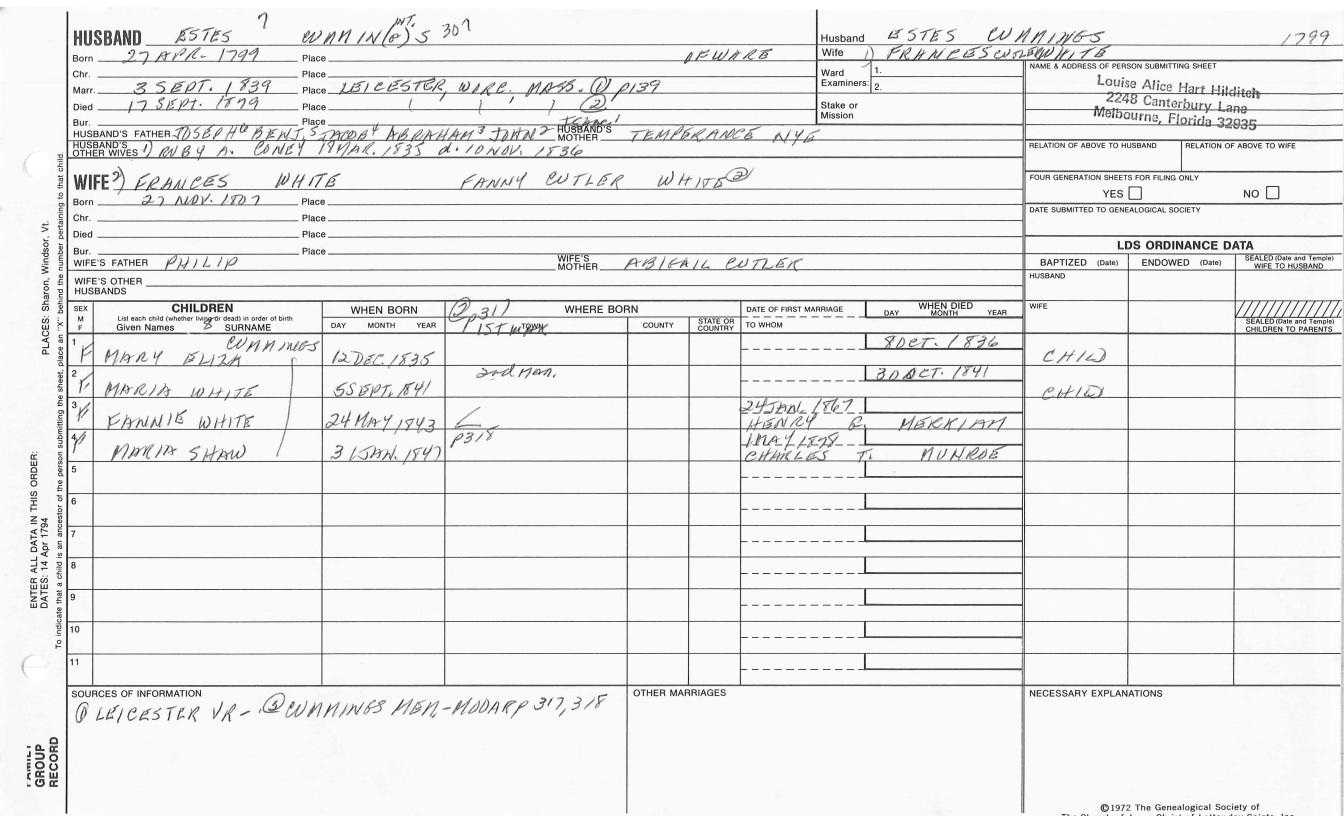 HUSBAND ESTES 7 CUMMIN(G)S INT. 307
Born 27 APR. 1799 Place OF WARE
Chr. Place
Marr. 3 SEPT. 1839 Place LEICESTER, WORC, MASS. ① p139
Died 17 SEPT. 1879 Place ②
Bur. Place
HUSBAND'S FATHER JOSEPH6 BENJ.5 JACOB4 ABRAHAM3 JOHN2 ISAAC1 HUSBAND'S MOTHER TEMPERANCE NYE
HUSBAND'S OTHER WIVES 1) RUBY A. CONEY 18 MAR. 1835 d. 10 NOV. 1836
WIFE 2) FRANCES WHITE FANNY CUTLER WHITE ②
Born 27 NOV. 1807 Place
Chr. Place
Died Place
Bur. Place
WIFE'S FATHER PHILIP WIFE'S MOTHER ABIGAIL CUTLER
WIFE'S OTHER HUSBANDS
Husband ESTES CUMMINGS 1799
Wife 1) FRANCES CUTLER WHITE
Ward Examiners: 1.
2.
Stake or Mission
NAME & ADDRESS OF PERSON SUBMITTING SHEET
Louise Alice Hart Hilditch
2248 Canterbury Lane
Melbourne, Florida 32935
RELATION OF ABOVE TO HUSBAND RELATION OF ABOVE TO WIFE
FOUR GENERATION SHEETS FOR FILING ONLY
YES NO
DATE SUBMITTED TO GENEALOGICAL SOCIETY
LDS ORDINANCE DATA
BAPTIZED (Date) ENDOWED (Date) SEALED (Date and Temple) WIFE TO HUSBAND
HUSBAND
WIFE
SEALED (Date and Temple) CHILDREN TO PARENTS
SEX M F
CHILDREN
List each child (whether living or dead) in order of birth
Given Names 8 SURNAME
WHEN BORN
DAY MONTH YEAR
② p317 WHERE BORN
1ST MAR. TOWN COUNTY STATE OR COUNTRY
DATE OF FIRST MARRIAGE
TO WHOM
WHEN DIED
DAY MONTH YEAR
1 F MARY ELIZA CUMMINGS 12 DEC. 1835 8 OCT. 1836 CHILD
2nd Mar.
2 F MARIA WHITE 5 SEPT. 1841 30 OCT. 1841 CHILD
3 F FANNIE WHITE 24 MAY 1843 24 JAN. 1867
HENRY E. MERRIAM
4 F MARIA SHAW 31 JAN. 1847 p318 1 MAY 1878
CHARLES T. MUNROE
5
6
7
8
9
10
11
SOURCES OF INFORMATION
① LEICESTER VR- ② CUMMINGS MEM.-MOOAR P 317, 318
OTHER MARRIAGES
NECESSARY EXPLANATIONS
©1972 The Genealogical Society of
ENTER ALL DATA IN THIS ORDER:
DATES: 14 Apr 1794
PLACES: Sharon, Windsor, Vt.
To indicate that a child is an ancestor of the person submitting the sheet, place an "X" behind the number pertaining to that child
FAMILY GROUP RECORD